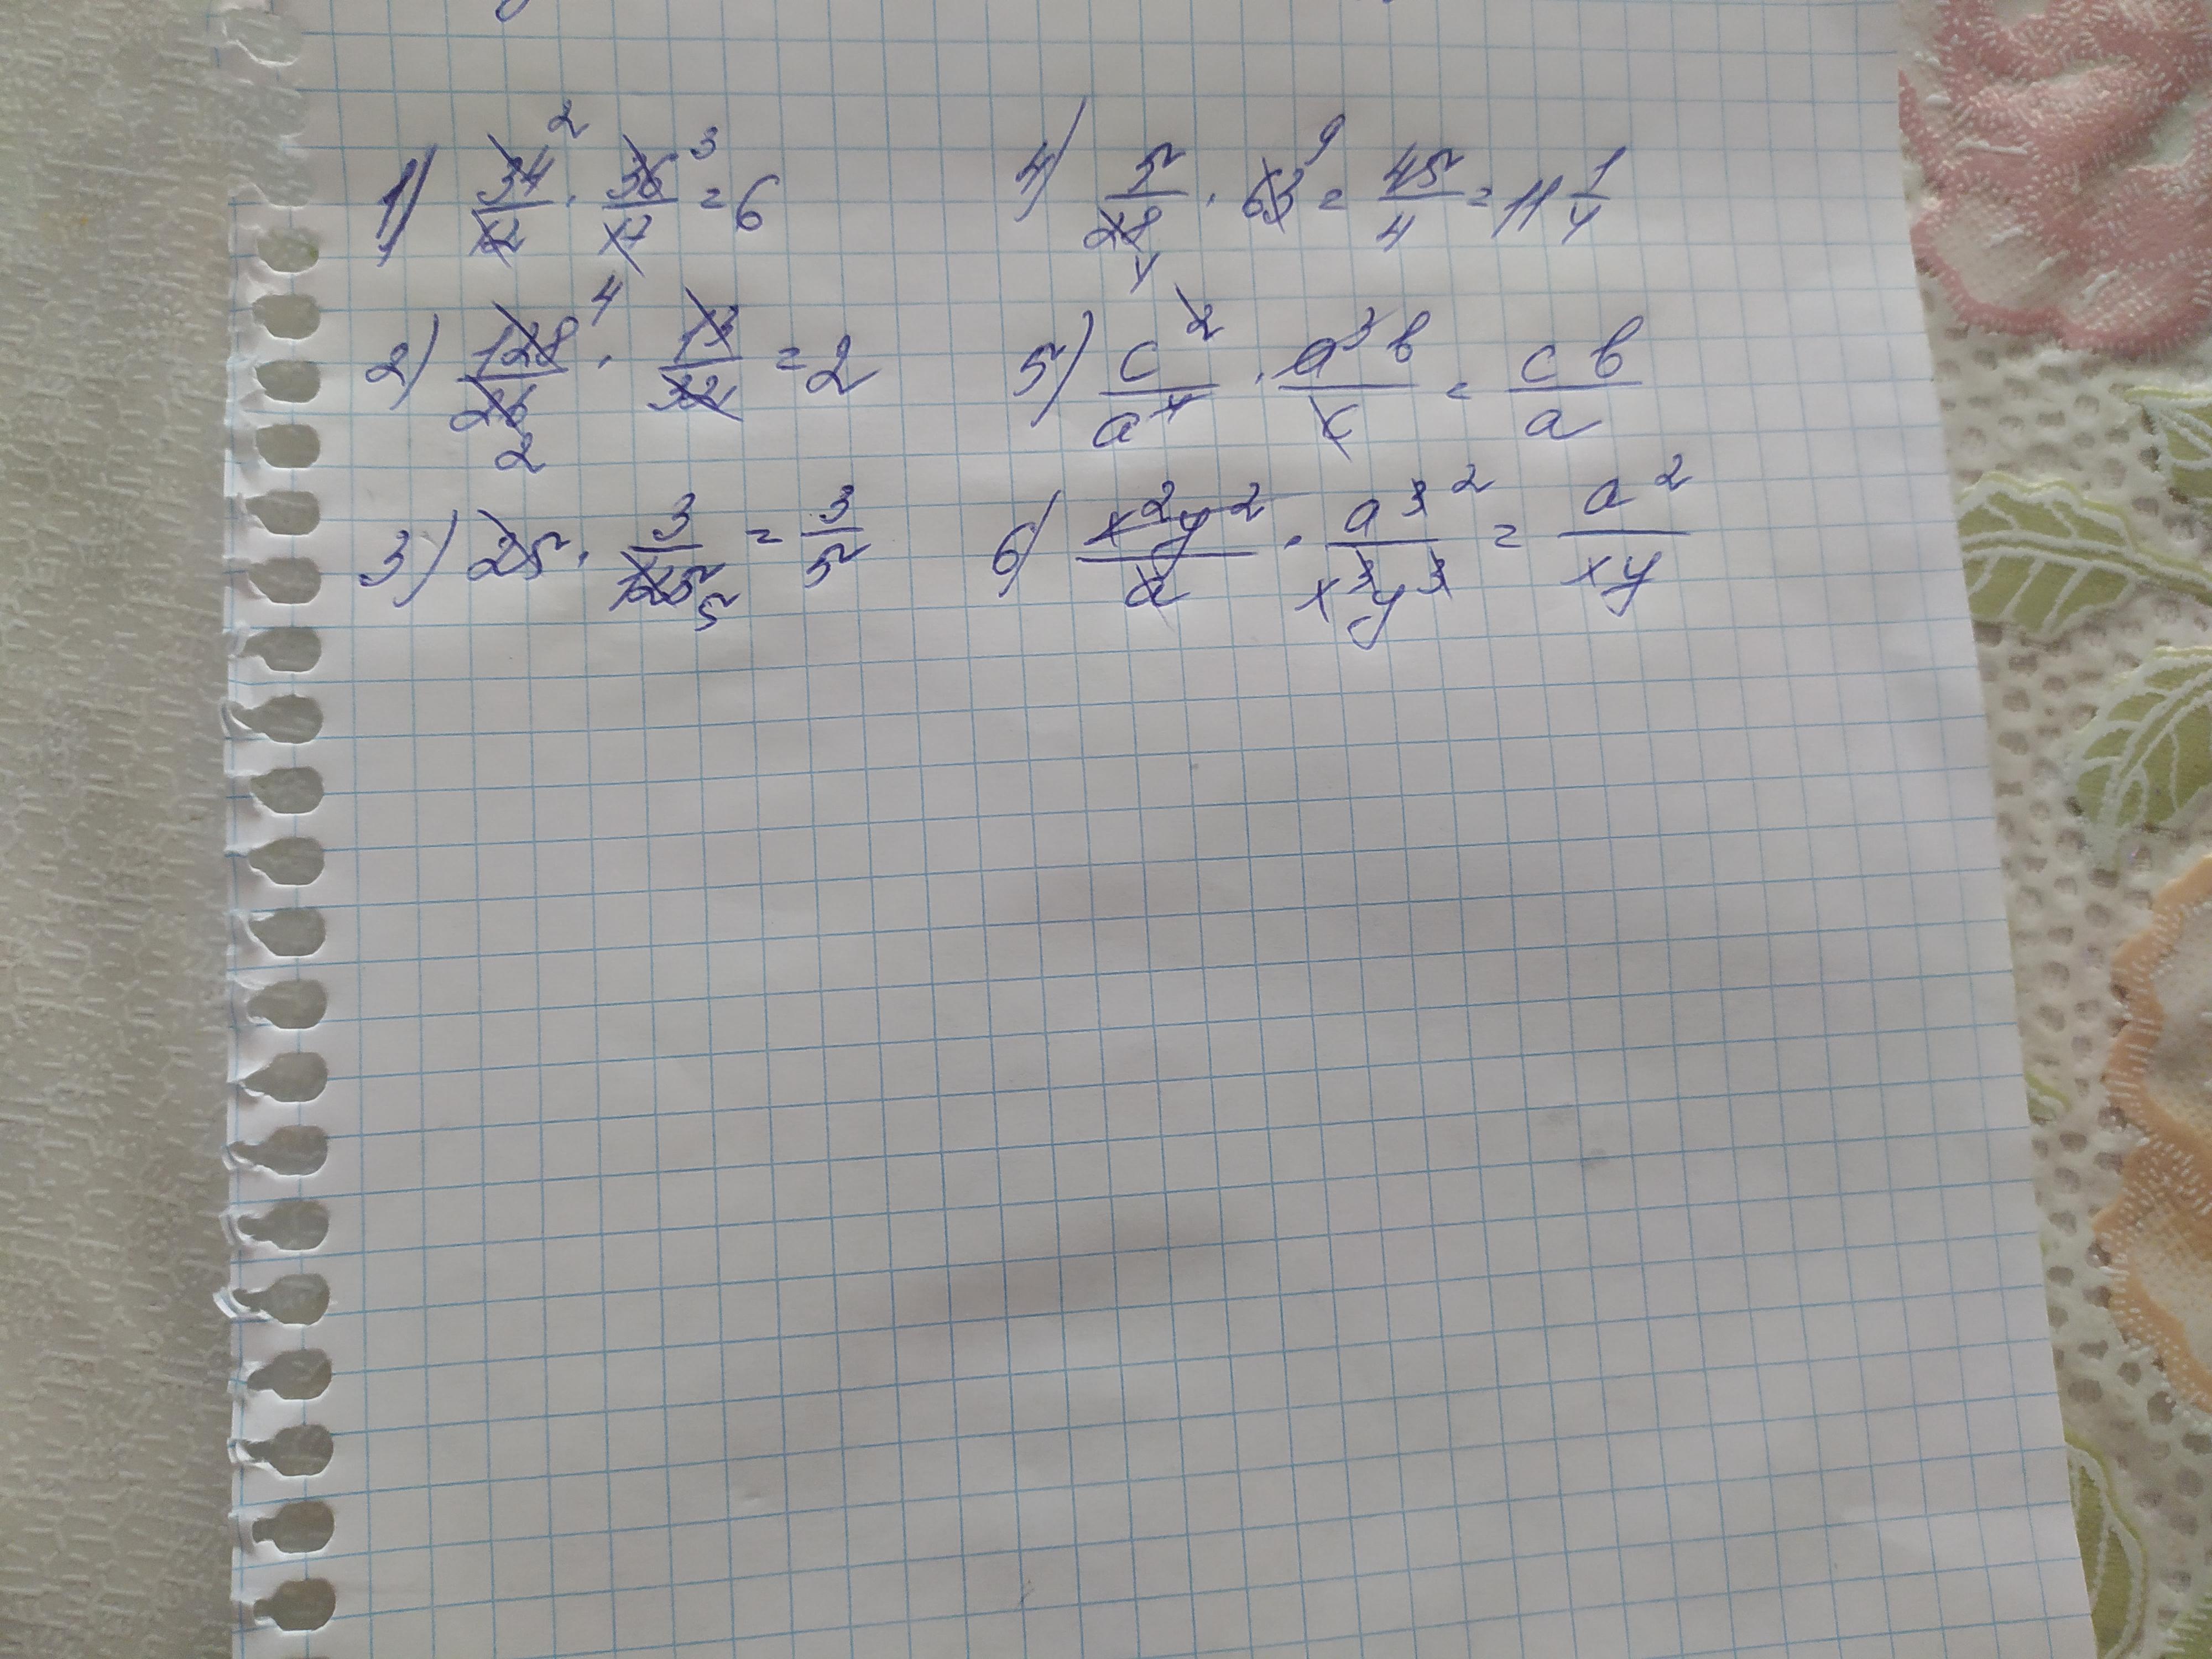 1) 34/12 2 · 36/17 3 = 6
2) 128/26 4 2 · 13/32 = 2
3) 25 · 3/125 5 = 3/5
4) 5/28 4 · 63 9 = 45/4 = 11 1/4
5) c²/a⁴ · a³b/c = cb/a
6) x²y²/a · a³/x³y³ 2 = a²/xy